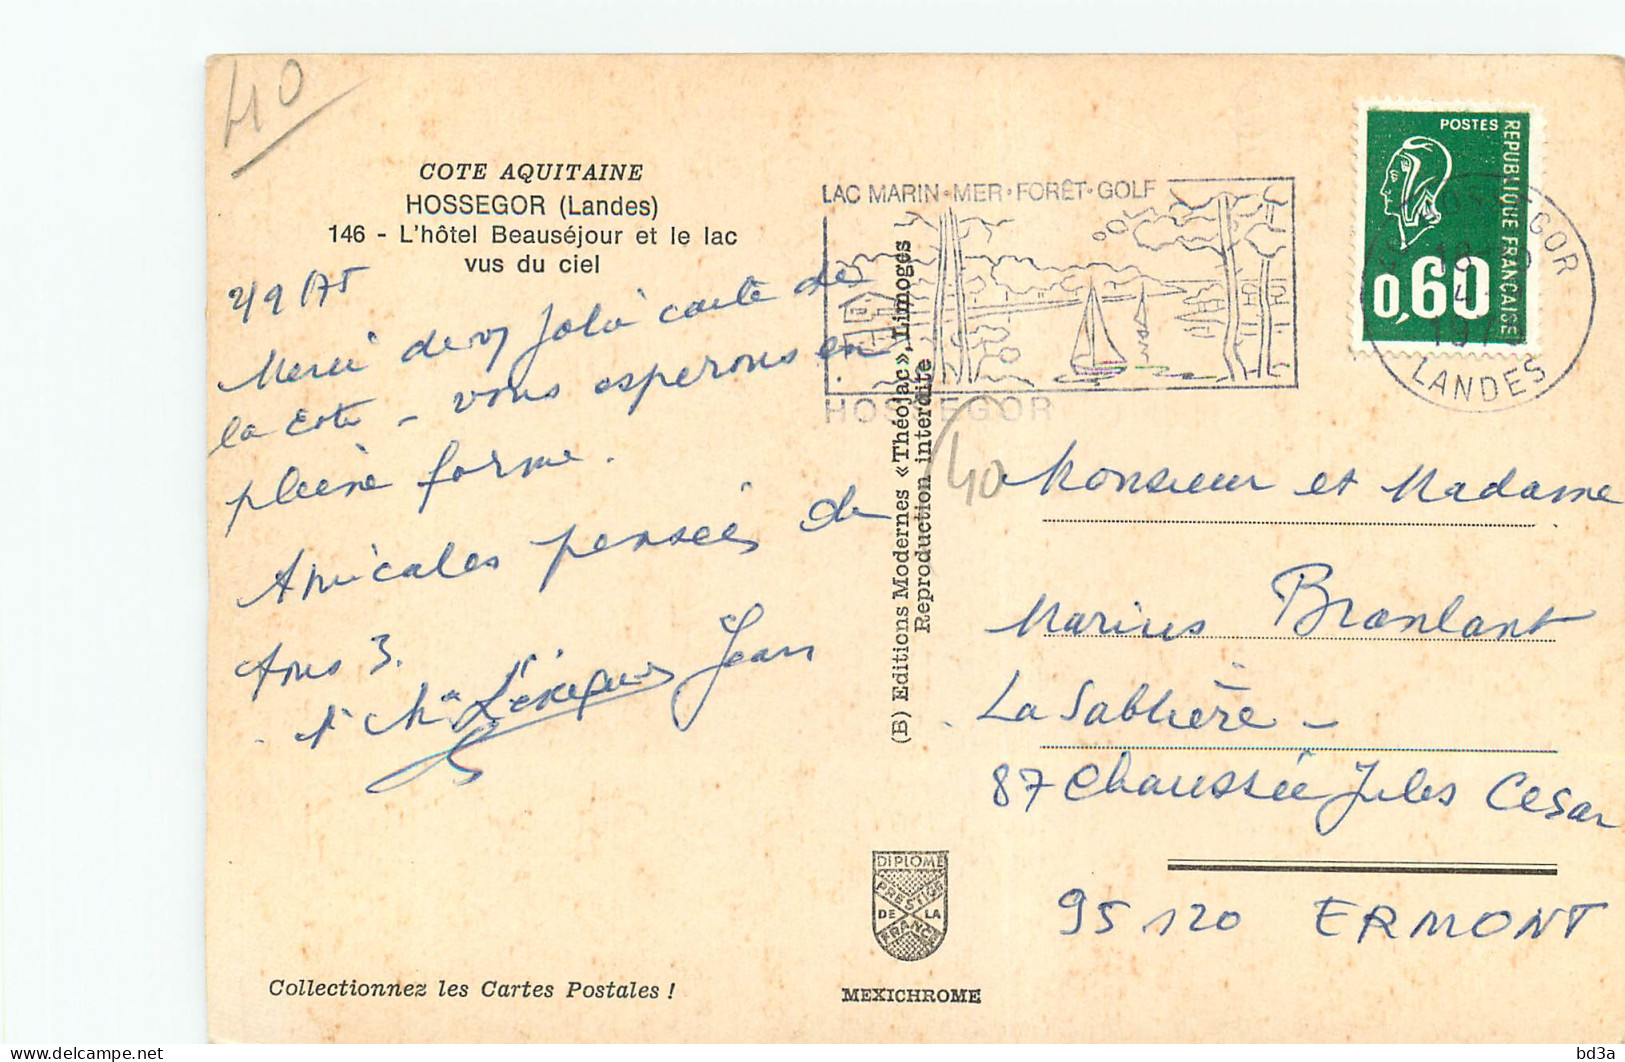 40
COTE AQUITAINE
HOSSEGOR (Landes)
146 - L'hôtel Beauséjour et le lac
vus du ciel
Merci de vs Jolie carte de
la Cote - vous esperons en
pleine forme.
Amicales pensées de
tous 3.
Jean
LAC MARIN · MER · FORÊT · GOLF
HOSSEGOR
POSTES
REPUBLIQUE FRANCAISE
0,60
LANDES
(B) Editions Modernes «Théojac», Limoges
Reproduction interdite
40
Monsieur et Madame
Marius Branlant
La Sablière -
87 Chaussée Jules Cesar
95120 ERMONT
DIPLOME
PRESTIGE
DE LA
FRANCE
MEXICHROME
Collectionnez les Cartes Postales !
bd3a